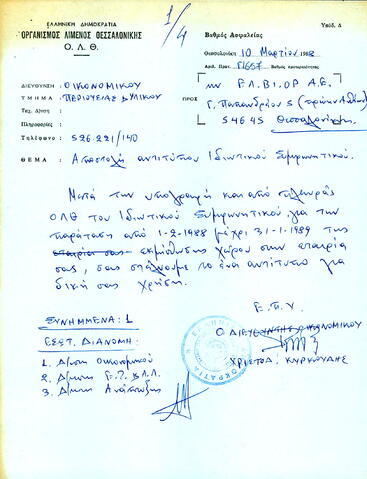 ΕΛΛΗΝΙΚΗ ΔΗΜΟΚΡΑΤΙΑ
ΟΡΓΑΝΙΣΜΟΣ ΛΙΜΕΝΟΣ ΘΕΣΣΑΛΟΝΙΚΗΣ
Ο. Λ. Θ.
1/4
Υπόδ. Δ
Βαθμός Ασφαλείας
Θεσσαλονίκη 10 Μαρτίου 1988
Αριθ. Πρωτ. Βαθμός προτεραιότητας
ΔΙΕΥΘΥΝΣΗ : ΟΙΚΟΝΟΜΙΚΟΥ
ΤΜΗΜΑ : ΠΕΡΙΟΥΣΙΑΣ & ΥΛΙΚΟΥ
Ταχ. Δ/νση :
Πληροφορίες :
Τηλέφωνο : 526-221/140
ΠΡΟΣ
την ΕΛ.ΒΙ.ΟΡ Α.Ε.
Γ. Παπανδρέου 5
54645 Θεσσαλονίκη
ΘΕΜΑ : Αποστολή αντιτύπου Ιδιωτικού Συμφωνητικού.
Μετά την υπογραφή και από πλευράς
ΟΛΘ του Ιδιωτικού Συμφωνητικού για την
παράταση από 1-2-1988 μέχρι 31-1-1989 της
εταιρία σας εκμίσθωσης χώρου στην εταιρία
σας, σας στέλνουμε το ένα αντίτυπο για
δική σας χρήση.
Ε.Π.Υ
Ο ΔΙΕΥΘΥΝΤΗΣ ΟΙΚΟΝΟΜΙΚΟΥ
ΧΡΙΣΤΟΔ. ΚΥΡΚΟΥΔΗΣ
ΣΥΝΗΜΜΕΝΑ: 1
ΕΣΩΤ. ΔΙΑΝΟΜΗ:
1. Δ/νση Οικονομικού
2. Δ/νση
3. Δ/νση Ανάπτυξης